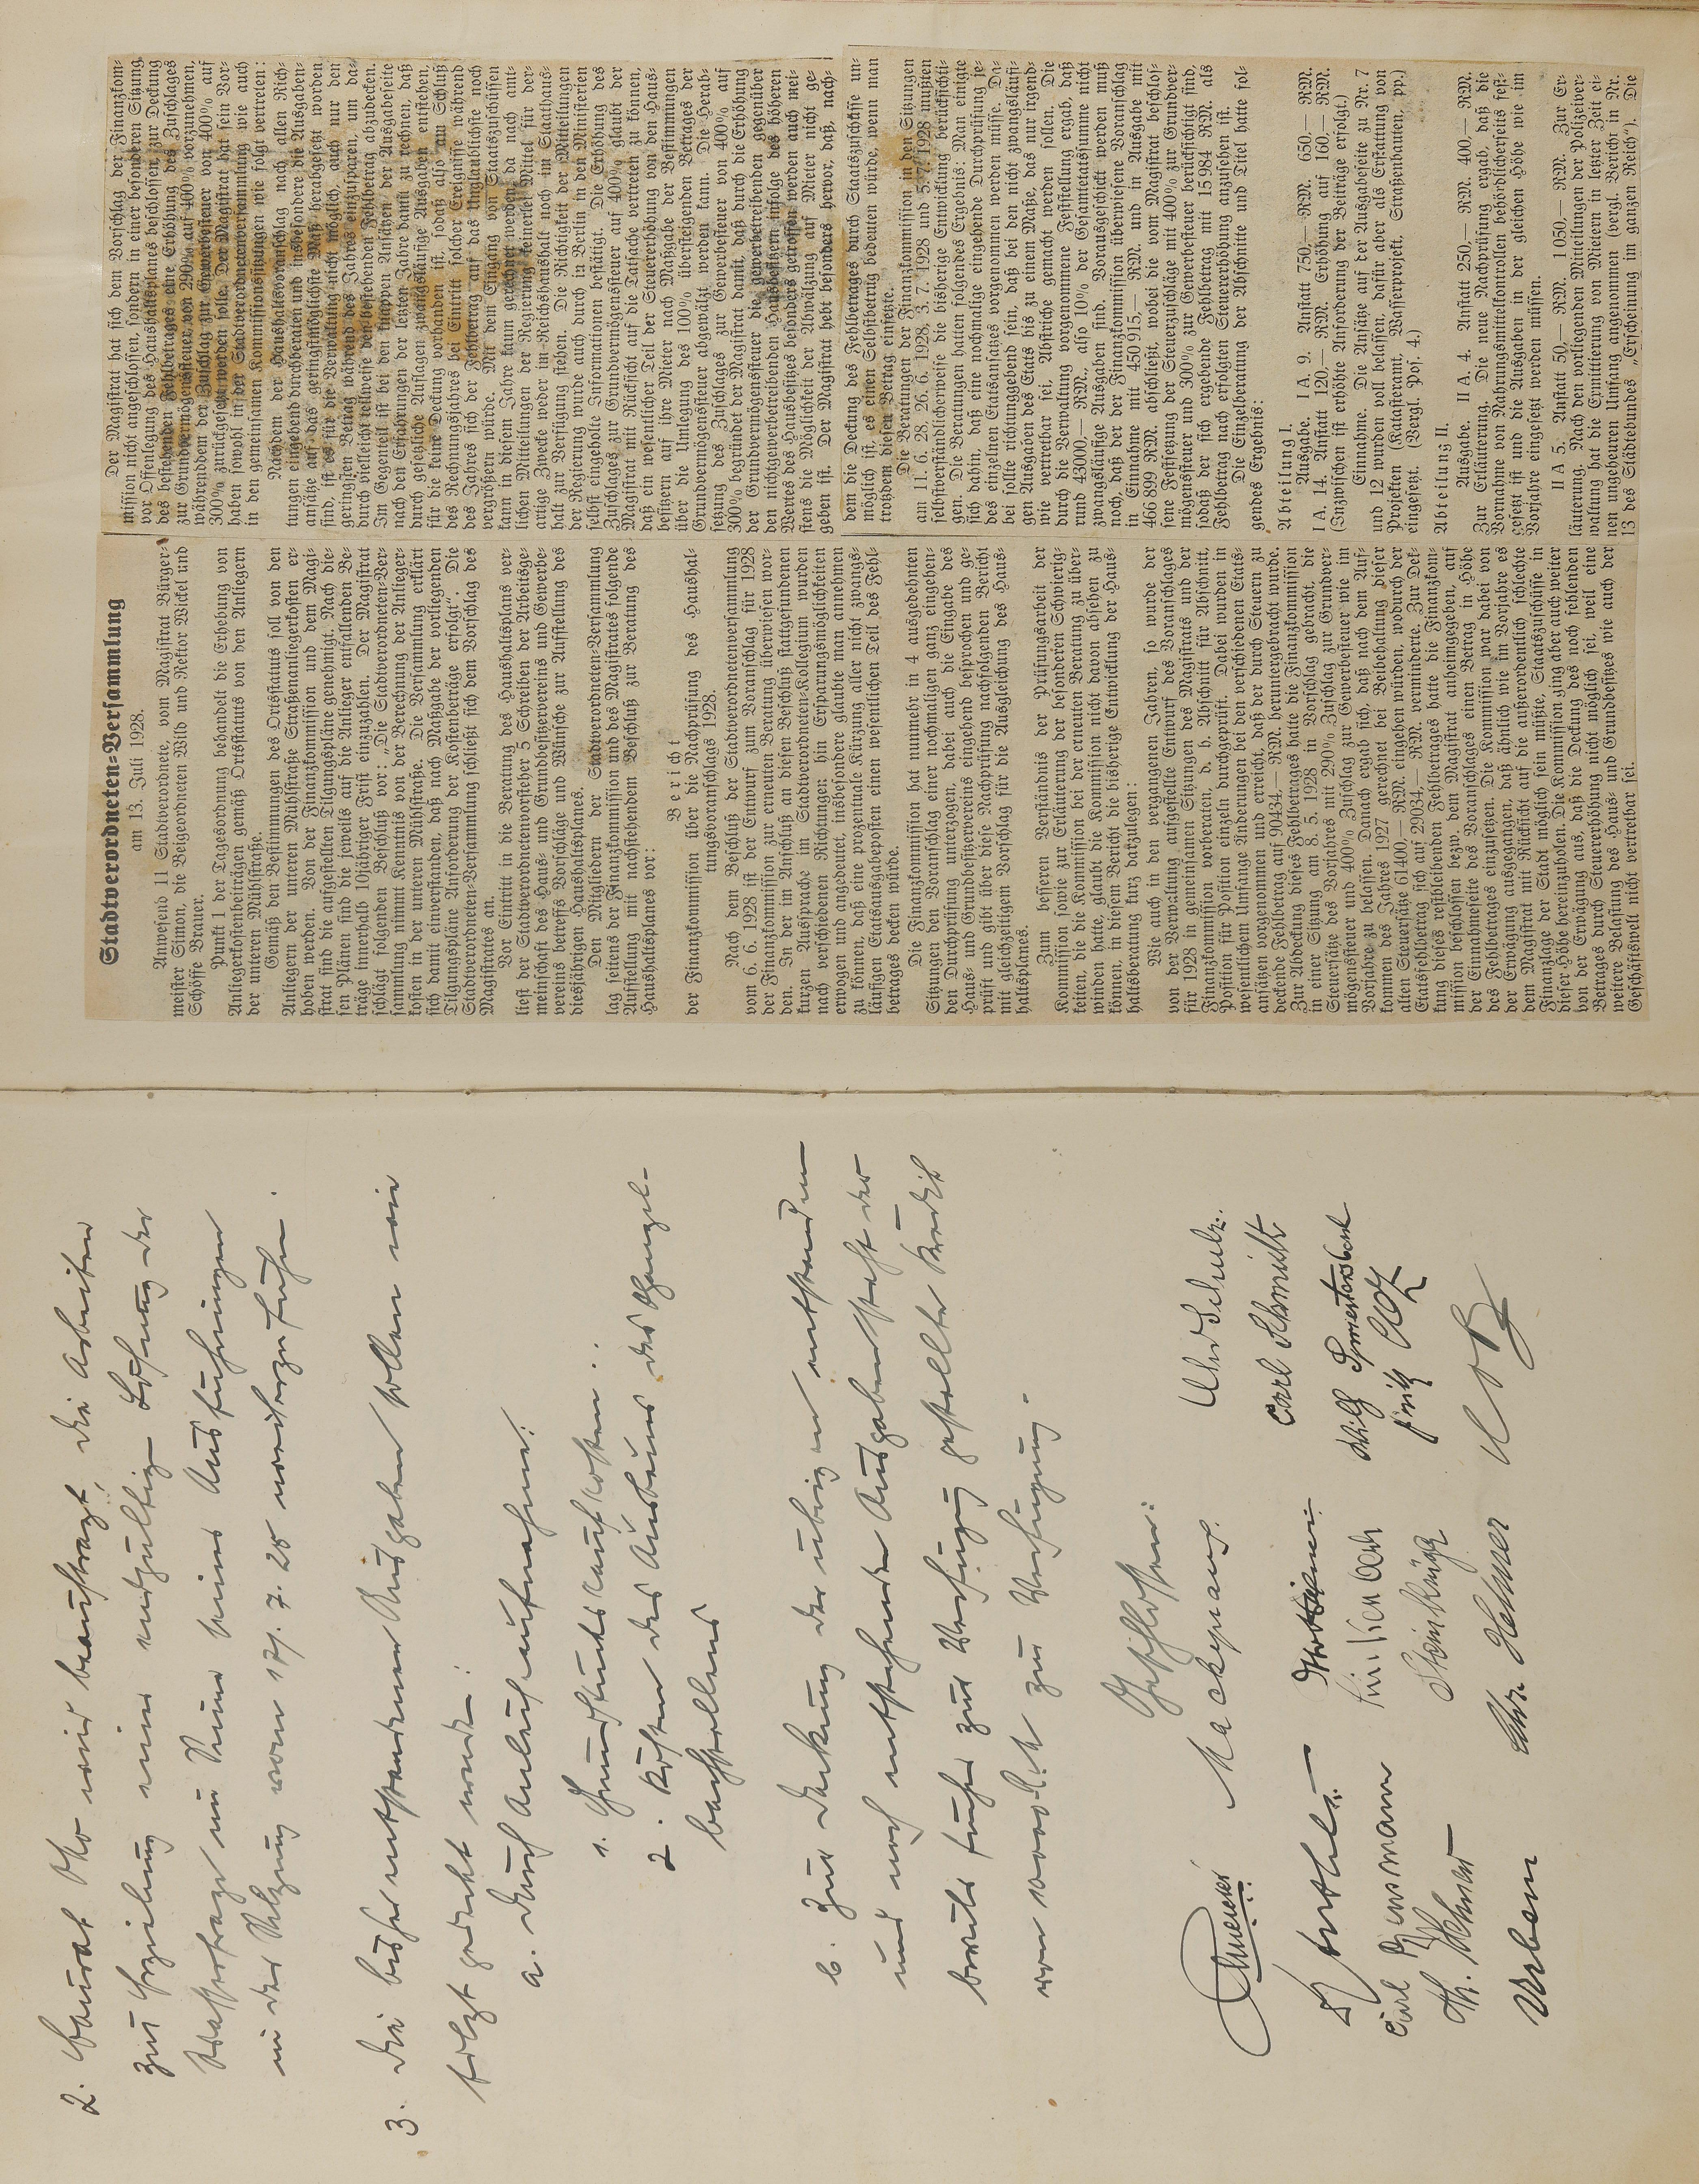 2. Baurat Otto wird beauftragt, die Arbeiten
zur Erzielung einer endgültigen Lösung der
Wasserfrage im Sinne seiner Ausführungen
in der Sitzung vom 17. 7. 28 weiterzuführen.
3. Die bisher entstandenen Ausgaben sollen wie
folgt gedeckt werden:
a. durch Anleiheaufnahme:
1. Grundstückskaufkosten
2. Kosten des Ausbaues der
b. Zur Deckung der übrigen entstandenen
und noch entstehenden Ausgaben steht der
bereits früher zur Verfügung gestellte Kredit
von zur Verfügung.
Geschlossen:
Mackepranz.
Schulz.
Carl Schmidt
Fritz Clotz
Carl Hensmann
Linkenbach
Steinhäuser
Th. Lehner
Chr. Helmer
Urban
Stadtverordneten-Versammlung
am 13. Juli 1928.
Anwesend 11 Stadtverordnete, vom Magistrat Bürger-
meister Simon, die Beigeordneten Wild und Rektor Wickel und
Schöffe Brauer.
Punkt 1 der Tagesordnung behandelt die Erhebung von
Anliegerkostenbeiträgen gemäß Ortsstatuts von den Anliegern
der unteren Mühlstraße.
Gemäß den Bestimmungen des Ortsstatuts soll von den
Anliegern der unteren Mühlstraße Straßenanliegerkosten er-
hoben werden. Von der Finanzkommission und dem Magi-
strat sind die aufgestellten Tilgungspläne genehmigt. Nach die-
sen Plänen sind die jeweils auf die Anlieger entfallenden Be-
träge innerhalb 10jähriger Frist einzuzahlen. Der Magistrat
schlägt folgenden Beschluß vor: „Die Stadtverordneten-Ver-
sammlung nimmt Kenntnis von der Berechnung der Anlieger-
kosten in der unteren Mühlstraße. Die Versammlung erklärt
sich damit einverstanden, daß nach Maßgabe der vorliegenden
Tilgungspläne Anforderung der Kostenbeträge erfolgt“. Die
Stadtverordneten-Versammlung schließt sich dem Vorschlag des
Magistrates an.
Vor Eintritt in die Beratung des Haushaltsplans ver-
liest der Stadtverordnetenvorsteher 5 Schreiben der Arbeitsge-
meinschaft des Haus- und Grundbesitzervereins und Gewerbe-
vereins betreffs Vorschläge und Wünsche zur Aufstellung des
diesjährigen Haushaltsplanes.
Den Mitgliedern der Stadtverordneten-Versammlung
lag seitens der Finanzkommission und des Magistrates folgende
Aufstellung mit nachstehendem Beschluß zur Beratung des
Haushaltsplanes vor:
Bericht
der Finanzkommission über die Nachprüfung des Haushal-
tungsvoranschlags 1928.
Nach dem Beschluß der Stadtverordnetenversammlung
vom 6. 6. 1928 ist der Entwurf zum Voranschlag für 1928
der Finanzkommission zur erneuten Beratung überwiesen wor-
den. In der im Anschluß an diesen Beschluß stattgefundenen
kurzen Aussprache im Stadtverordneten-Kollegium wurden
nach verschiedenen Richtungen hin Ersparungsmöglichkeiten
erwogen und angedeutet, insbesondere glaubte man annehmen
zu können, daß eine prozentuale Kürzung aller nicht zwangs-
läufigen Etatsausgabeposten einen wesentlichen Teil des Fehl-
betrages decken würde.
Die Finanzkommission hat nunmehr in 4 ausgedehnten
Sitzungen den Voranschlag einer nochmaligen ganz eingehen-
den Durchprüfung unterzogen, dabei auch die Eingabe des
Haus- und Grundbesitzervereins eingehend besprochen und ge-
prüft und gibt über diese Nachprüfung nachfolgenden Bericht
mit gleichzeitigem Vorschlag für die Ausgleichung des Haus-
haltsplanes.
Zum besseren Verständnis der Prüfungsarbeit der
Kommission sowie zur Erläuterung der besonderen Schwierig-
keiten, die die Kommission bei der erneuten Beratung zu über-
winden hatte, glaubt die Kommission nicht davon absehen zu
können, in diesem Bericht die bisherige Entwicklung der Haus-
haltsberatung kurz darzulegen:
Wie auch in den vergangenen Jahren, so wurde der
von der Verwaltung aufgestellte Entwurf des Voranschlages
für 1928 in gemeinsamen Sitzungen des Magistrats und der
Finanzkommission vorberaten, d. h. Abschnitt für Abschnitt,
Position für Position einzeln durchgeprüft. Dabei wurden in
wesentlichem Umfange Änderungen bei den verschiedenen Etats-
ansätzen vorgenommen und erreicht, daß der durch Steuern zu
deckende Fehlbetrag auf 90434.— RM. heruntergebracht wurde.
Zur Abdeckung dieses Fehlbetrages hatte die Finanzkommission
in einer Sitzung am 8. 5. 1928 in Vorschlag gebracht, die
Steuersätze des Vorjahres mit 290% Zuschlag zur Grundver-
mögenssteuer und 400% Zuschlag zur Gewerbesteuer wie im
Vorjahre zu belassen. Danach ergab sich, daß nach dem Auf-
kommen des Jahres 1927 gerechnet bei Beibehaltung dieser
alten Steuersätze 61400.— RM. eingehen würden, wodurch der
Etatsfehlbetrag sich auf 29034.— RM. verminderte. Zur Dek-
kung dieses restbleibenden Fehlbetrages hatte die Finanzkom-
mission beschlossen bezw. dem Magistrat anheimgegeben, auf
der Einnahmeseite des Voranschlages einen Betrag in Höhe
des Fehlbetrages einzusetzen. Die Kommission war dabei von
der Erwägung ausgegangen, daß ähnlich wie im Vorjahre es
dem Magistrat mit Rücksicht auf die außerordentlich schlechte
Finanzlage der Stadt möglich sein müßte, Staatszuschüsse in
dieser Höhe hereinzuholen. Die Kommission ging aber auch weiter
von der Erwägung aus, daß die Deckung des noch fehlenden
Betrages durch Steuererhöhung nicht möglich sei, weil eine
weitere Belastung des Haus- und Grundbesitzes wie auch der
Geschäftswelt nicht vertretbar sei.
Der Magistrat hat sich dem Vorschlag der Finanzkom-
mission nicht angeschlossen, sondern in einer besonderen Sitzung
vor Offenlegung des Haushaltsplanes beschlossen, zur Deckung
des bestehenden Fehlbetrages eine Erhöhung des Zuschlages
zur Grundvermögenssteuer von 290% auf 400% vorzunehmen,
währenddem der Zuschlag zur Gewerbesteuer von 400% auf
300% zurückgesetzt werden solle. Der Magistrat hat sein Vor-
haben sowohl in der Stadtverordnetenversammlung wie auch
in den gemeinsamen Kommissionssitzungen wie folgt vertreten:
Nachdem der Haushaltsvoranschlag nach allen Rich-
tungen eingehend durchberaten und insbesondere die Ausgaben-
ansätze auf das geringstmöglichste Maß herabgesetzt worden
sind, ist es für die Verwaltung nicht möglich, auch nur den
geringsten Betrag während des Jahres einzusparen, um da-
durch vielleicht teilweise den bestehenden Fehlbetrag abzudecken.
Im Gegenteil ist bei den knappen Ansätzen der Ausgabeseite
nach den Erfahrungen der letzten Jahre damit zu rechnen, daß
durch gesetzliche Auflagen zwangsläufige Ausgaben entstehen,
für die keine Deckung vorhanden ist, sodaß also am Schluß
des Rechnungsjahres bei Eintritt solcher Ereignisse während
des Jahres sich der Fehlbetrag auf das Unglaublichste noch
vergrößern würde. Mit dem Eingang von Staatszuschüssen
kann in diesem Jahre kaum gerechnet werden, da nach amt-
lichen Mitteilungen der Regierung keinerlei Mittel für der-
artige Zwecke weder im Reichshaushalt noch im Staatshaus-
halt zur Verfügung stehen. Die Richtigkeit der Mitteilungen
der Regierung wurde auch durch in Berlin in den Ministerien
selbst eingeholte Informationen bestätigt. Die Erhöhung des
Zuschlages zur Grundvermögenssteuer auf 400% glaubt der
Magistrat mit Rücksicht auf die Tatsache vertreten zu können,
daß ein wesentlicher Teil der Steuererhöhung von den Haus-
besitzern auf ihre Mieter nach Maßgabe der Bestimmungen
über die Umlegung des 100% übersteigenden Betrages der
Grundvermögenssteuer abgewälzt werden kann. Die Herab-
setzung des Zuschlages zur Gewerbesteuer von 400% auf
300% begründet der Magistrat damit, daß durch die Erhöhung
der Grundvermögenssteuer die gewerbetreibenden gegenüber
den nichtgewerbetreibenden Hausbesitzern infolge des höheren
Wertes des Hausbesitzes besonders getroffen werden auch mei-
stens die Möglichkeit der Abwälzung auf Mieter nicht ge-
geben ist. Der Magistrat hebt besonders hervor, daß, nach-
dem die Deckung des Fehlbetrages durch Staatszuschüsse un-
möglich ist, es einen Selbstbetrug bedeuten würde, wenn man
trotzdem diesen Betrag einsetze.
Die Beratungen der Finanzkommission in den Sitzungen
am 11. 6. 28, 26. 6. 1928, 3. 7. 1928 und 5. 7. 1928 mußten
selbstverständlicherweise die bisherige Entwicklung berücksich-
tigen. Die Beratungen hatten folgendes Ergebnis: Man einigte
sich dahin, daß eine nochmalige eingehende Durchprüfung je-
des einzelnen Etatsansatzes vorgenommen werden müsse. Da-
bei sollte richtunggebend sein, daß bei den nicht zwangsläufi-
gen Ausgaben des Etats bis zu einem Maße, das nur irgend-
wie vertretbar sei, Abstriche gemacht werden sollen. Die
durch die Verwaltung vorgenommene Feststellung ergab, daß
rund 43000.— RM., also 10% der Gesamtetatssumme nicht
zwangsläufige Ausgaben sind. Vorausgeschickt werden muß
noch, daß der der Finanzkommission überwiesene Voranschlag
in Einnahme mit 450915,— RM. und in Ausgabe mit
466899 RM. abschließt, wobei die vom Magistrat beschlos-
sene Festsetzung der Steuerzuschläge mit 400% zur Grundver-
mögenssteuer und 300% zur Gewerbesteuer berücksichtigt sind,
sodaß der sich ergebende Fehlbetrag mit 15984 RM. als
Fehlbetrag nach erfolgten Steuererhöhung anzusehen ist.
Die Einzelberatung der Abschnitte und Titel hatte fol-
gendes Ergebnis:
Abteilung I.
Ausgabe. I A. 9. Anstatt 750,— RM. 650,— RM.
I A. 14. Anstatt 120.— RM. Erhöhung auf 160.— RM.
(Inzwischen ist erhöhte Anforderung der Beiträge erfolgt.)
Einnahme. Die Ansätze auf der Ausgabeseite zu Nr. 7
und 12 wurden voll belassen, dafür aber als Erstattung von
Projekten (Katasteramt, Wasserprojekt, Straßenbauten, pp.)
eingesetzt. (Vergl. Pos. 4.)
Abteilung II.
Ausgabe. II A. 4. Anstatt 250,— RM. 400,— RM.
Zur Erläuterung. Die neue Nachprüfung ergab, daß die
Vornahme von Nahrungsmittelkontrollen behördlicherseits fest-
gesetzt ist und die Ausgaben in der gleichen Höhe wie im
Vorjahre eingesetzt werden müssen.
II A 5. Anstatt 50,— RM. 1050,— RM. Zur Er-
läuterung. Nach den vorliegenden Mitteilungen der Polizeiver-
waltung hat die Exmittierung von Mietern in letzter Zeit ei-
nen ungeheuren Umfang angenommen (vergl. Bericht in Nr.
13 des Städtebundes „Erscheinung im ganzen Reich“). Die